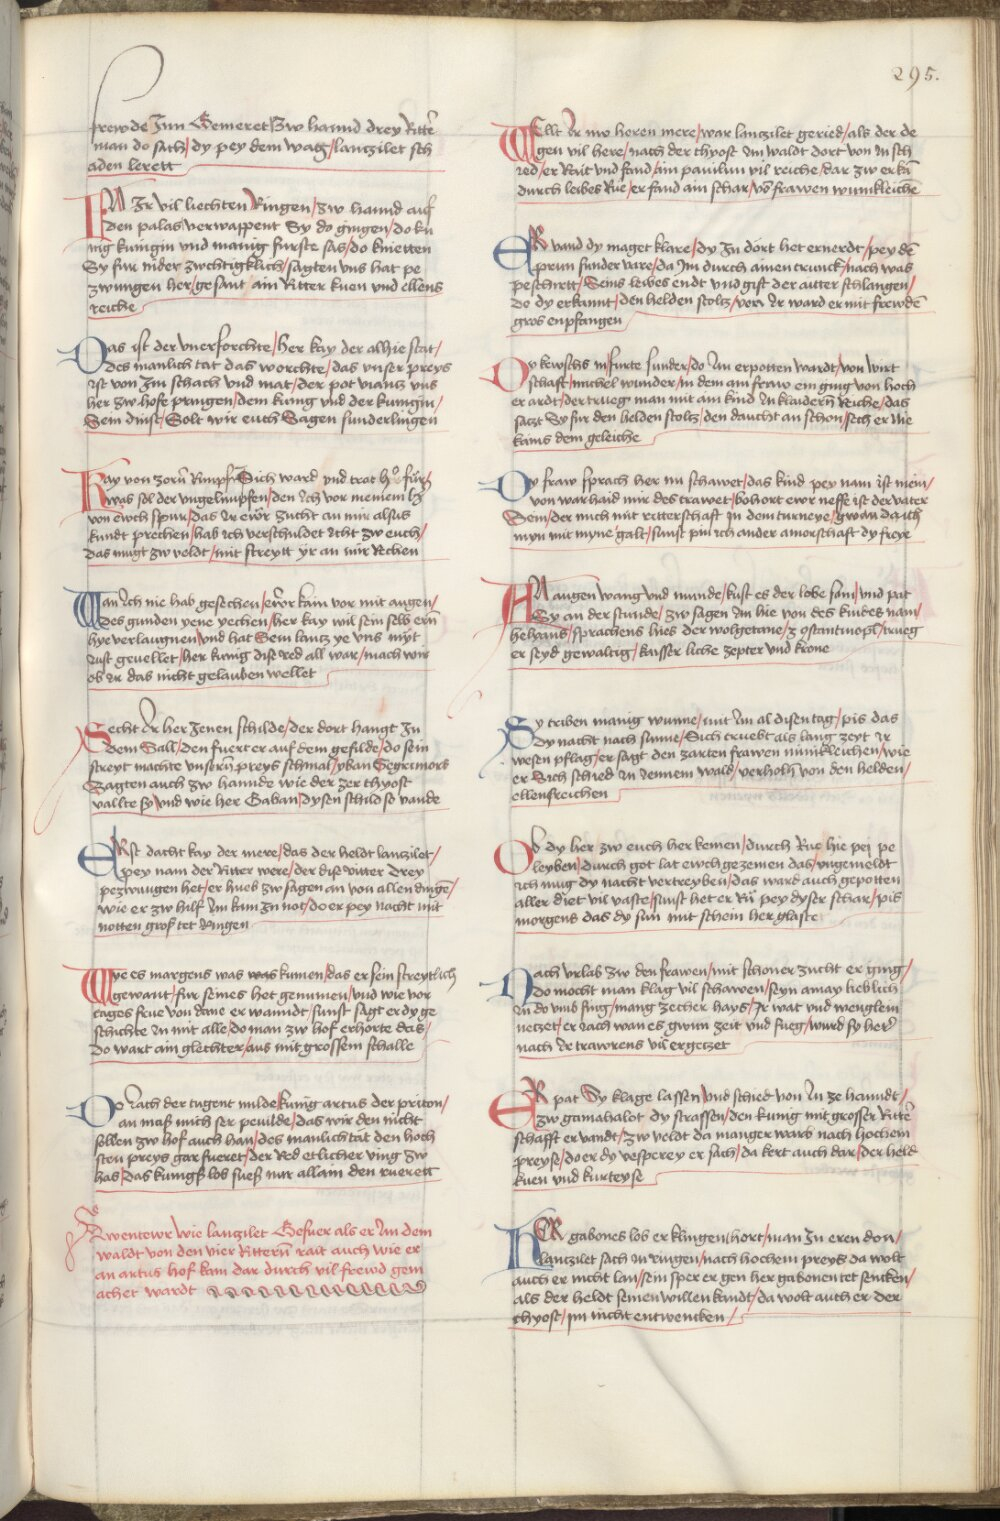 295.
frewde Inn Gemeret/Zw hannd drey Ritt̄
man do sach/dy pey dem wag/lantzilet sch
aden lerett
IN Ir vil liechten Ringen/zw hannd auf
den palas verwappent Sy do gingen/do ku
nig kunigin vnd manig furste sas/do knietten
Sy fur nider zwchtigklich/sagten vns hat pe
zwungen her/gesant ain Ritter kuen vnd ellens
reiche
Das ist der vnerforchte/her kay der alhie stat/
des manlich tat das worchte/das vnser preys
ist von Im schach vnd mat/der pot viantz vns
her zw hofe pringen/dem kunig vnd der kunigin/
Sein dinst/Solt wir euch Sagen sunderlingen
Kay von zorn Rimpfn Sich ward vnd trat h̄ fur/
was sol der vngelimpfen/den Ich vor meinem h̄
von ewch spur/das Ir ewr zucht an mir alsus
kundt prechen/hab ich verschuldet Icht zw euch/
das mugt zw veldt/mit streytt yr an mir Rechen
Wan Ich nie hab gesechen/ewr kain vor mit augen/
des gunden yene yechen/her kay wil sein selb ern
hye verlaugnen/vnd hat Sein lantz ye vns mit
tust geuellet/her kunig dise red all war/mach wir
ob Ir das nicht gelauben wellet
Secht Ir her Jenen schilde/der dort hangt In
dem Sall/den fuert er auf dem gefilde/do sein
streyt machte vnsern preys schmal/yban Segremors
Sagten auch zw hannde wie der zer thyost
vallte sy/vnd wie her Gaban/dysen schild so vande
ERst dacht kay der mere/das der heldt lantzilet/
pey nam der Ritter were/der dise ritter drey
pezwungen het/er hueb zw sagen an von allen dinge/
wie er zw hilf Im kam In not/do er pey nacht mit
notten gros tet Ringen
Wye es margens was was kumen/das er sein streytlich
gewant/fur seines het genumen/vnd wie vor
tages frue von dane er wanndt/sunst sagt er dy ge
schichte In mit alle/do man zw hof erhorte das/
do wart ain glechter/aus mit grossem schalle
Do sach der tugent milde/kunig artus der priton/
an mas mich ser peuilde/das wir den nicht
sollen zw hof auch han/des manlich tat den hoch
sten preys gar fueret/der Red etlicher ving zw
has/das kunigs los sues nur allain den rueret
Awentewr wie lantzilet Gefuer als er In dem
waldt von den vier Rittern rait auch wie er
an artus hof kam dar durch vil frewd gem
achet wardt
WEllt Ir nw heren mere/war lantzilet geried/als der de
gen vil here/nach der thyost Im waldt dort von In sch
ied/er Rait vnd fand/ain pauilun vil reiche/dar zw er ka
durch leibes Rue/er fand ain schar/vo frawen wunkleiche
ER vand dy maget klare/dy In dort het ernerdt/pey de
prun sunder vare/da Im durch ainen trunck/nach was
peschertt/Seins leibes endt vnd gift der atter schlangen/
do dy erkannt/den helden stoltz/von Ir ward er mit frewde
gros enpfangen
Dy kewschs in furte sunder/do Im erpotten wardt/von wirt
schaft/michel wunder/in dem ain fraw ein ging von hoch
er ardt/der trueg man mit am kind In klaidern Reiche/das
satzt Sy fur den helden stoltz/den daucht an schon/sech er nie
kains dem geleiche
Dy fraw sprach her nu schawet/das kind pey nam ist mein/
von warhaid mir des trawet/bohort ewr neffe ist der vater
Sein/der mich mit ritterschaft In dem turneye/gwan da ich
myn mit myne galt/sunst pin ich ander amorschaft dy freye
AN augen wang vnd munde/kust es der lobe sam/vnd pat
Sy an der stunde/zw sagen Im hie von des kindes nam/
helyans/sprachens hies der wolgetane/Constantinopl/trueg
er seyd gewaltig/kaisser liche zepter vnd krone
Sy triben manig wunne/mit Im al disen tag/pis das
dy nacht nach sunne/Sich truebt als lang zeyt Ir
wesen pflag/er sagt den zarten frawen minikleichen/wie
er Sich schied In Jennem wald/verholn von den helden/
ellensreichen
Ob dy her zw euch her kemen/durch Rue hie pei pe
leyben/durch got lat ewch gezemen das/vngemeldt
ich mug dy nacht vertreyben/das ward auch gepotten
aller diet vil vaste/sunst het er Ru pey dyser schar/pis
morgens das dy sun mit schein her glaste
Nach vrlab zw den frawen/mit schoner zucht er ging/
do mocht man klag vil schawen/seyn amay lieblich
In do vmb fing/mang zecher hays/Ir wat vnd wenglein
netzet/er iach wan es gwun zeit vnd fueg/wurd sy her
nach Ir trawrens vil ergetzet
ER pat Sy klage lassen/vnd schied von In ze hanndt/
zw gamahalot dy strassen/den kunig mit grosser Ritte
schafft er vandt/zw veldt da manger warb nach hochem
preyse/do er dy vesperey er sach/da kert auch dar/der held
kuen vnd kurteyse
HER gabones los er klingen hort/man In eren don/
lantzilet sach In ringen/nach hochem preys da wolt
auch er nicht lan/sein sper er gen her gabonen tet sencken/
als der heldt seinen willen kandt/da wolt auch er der
thyost/im nicht entwencken/